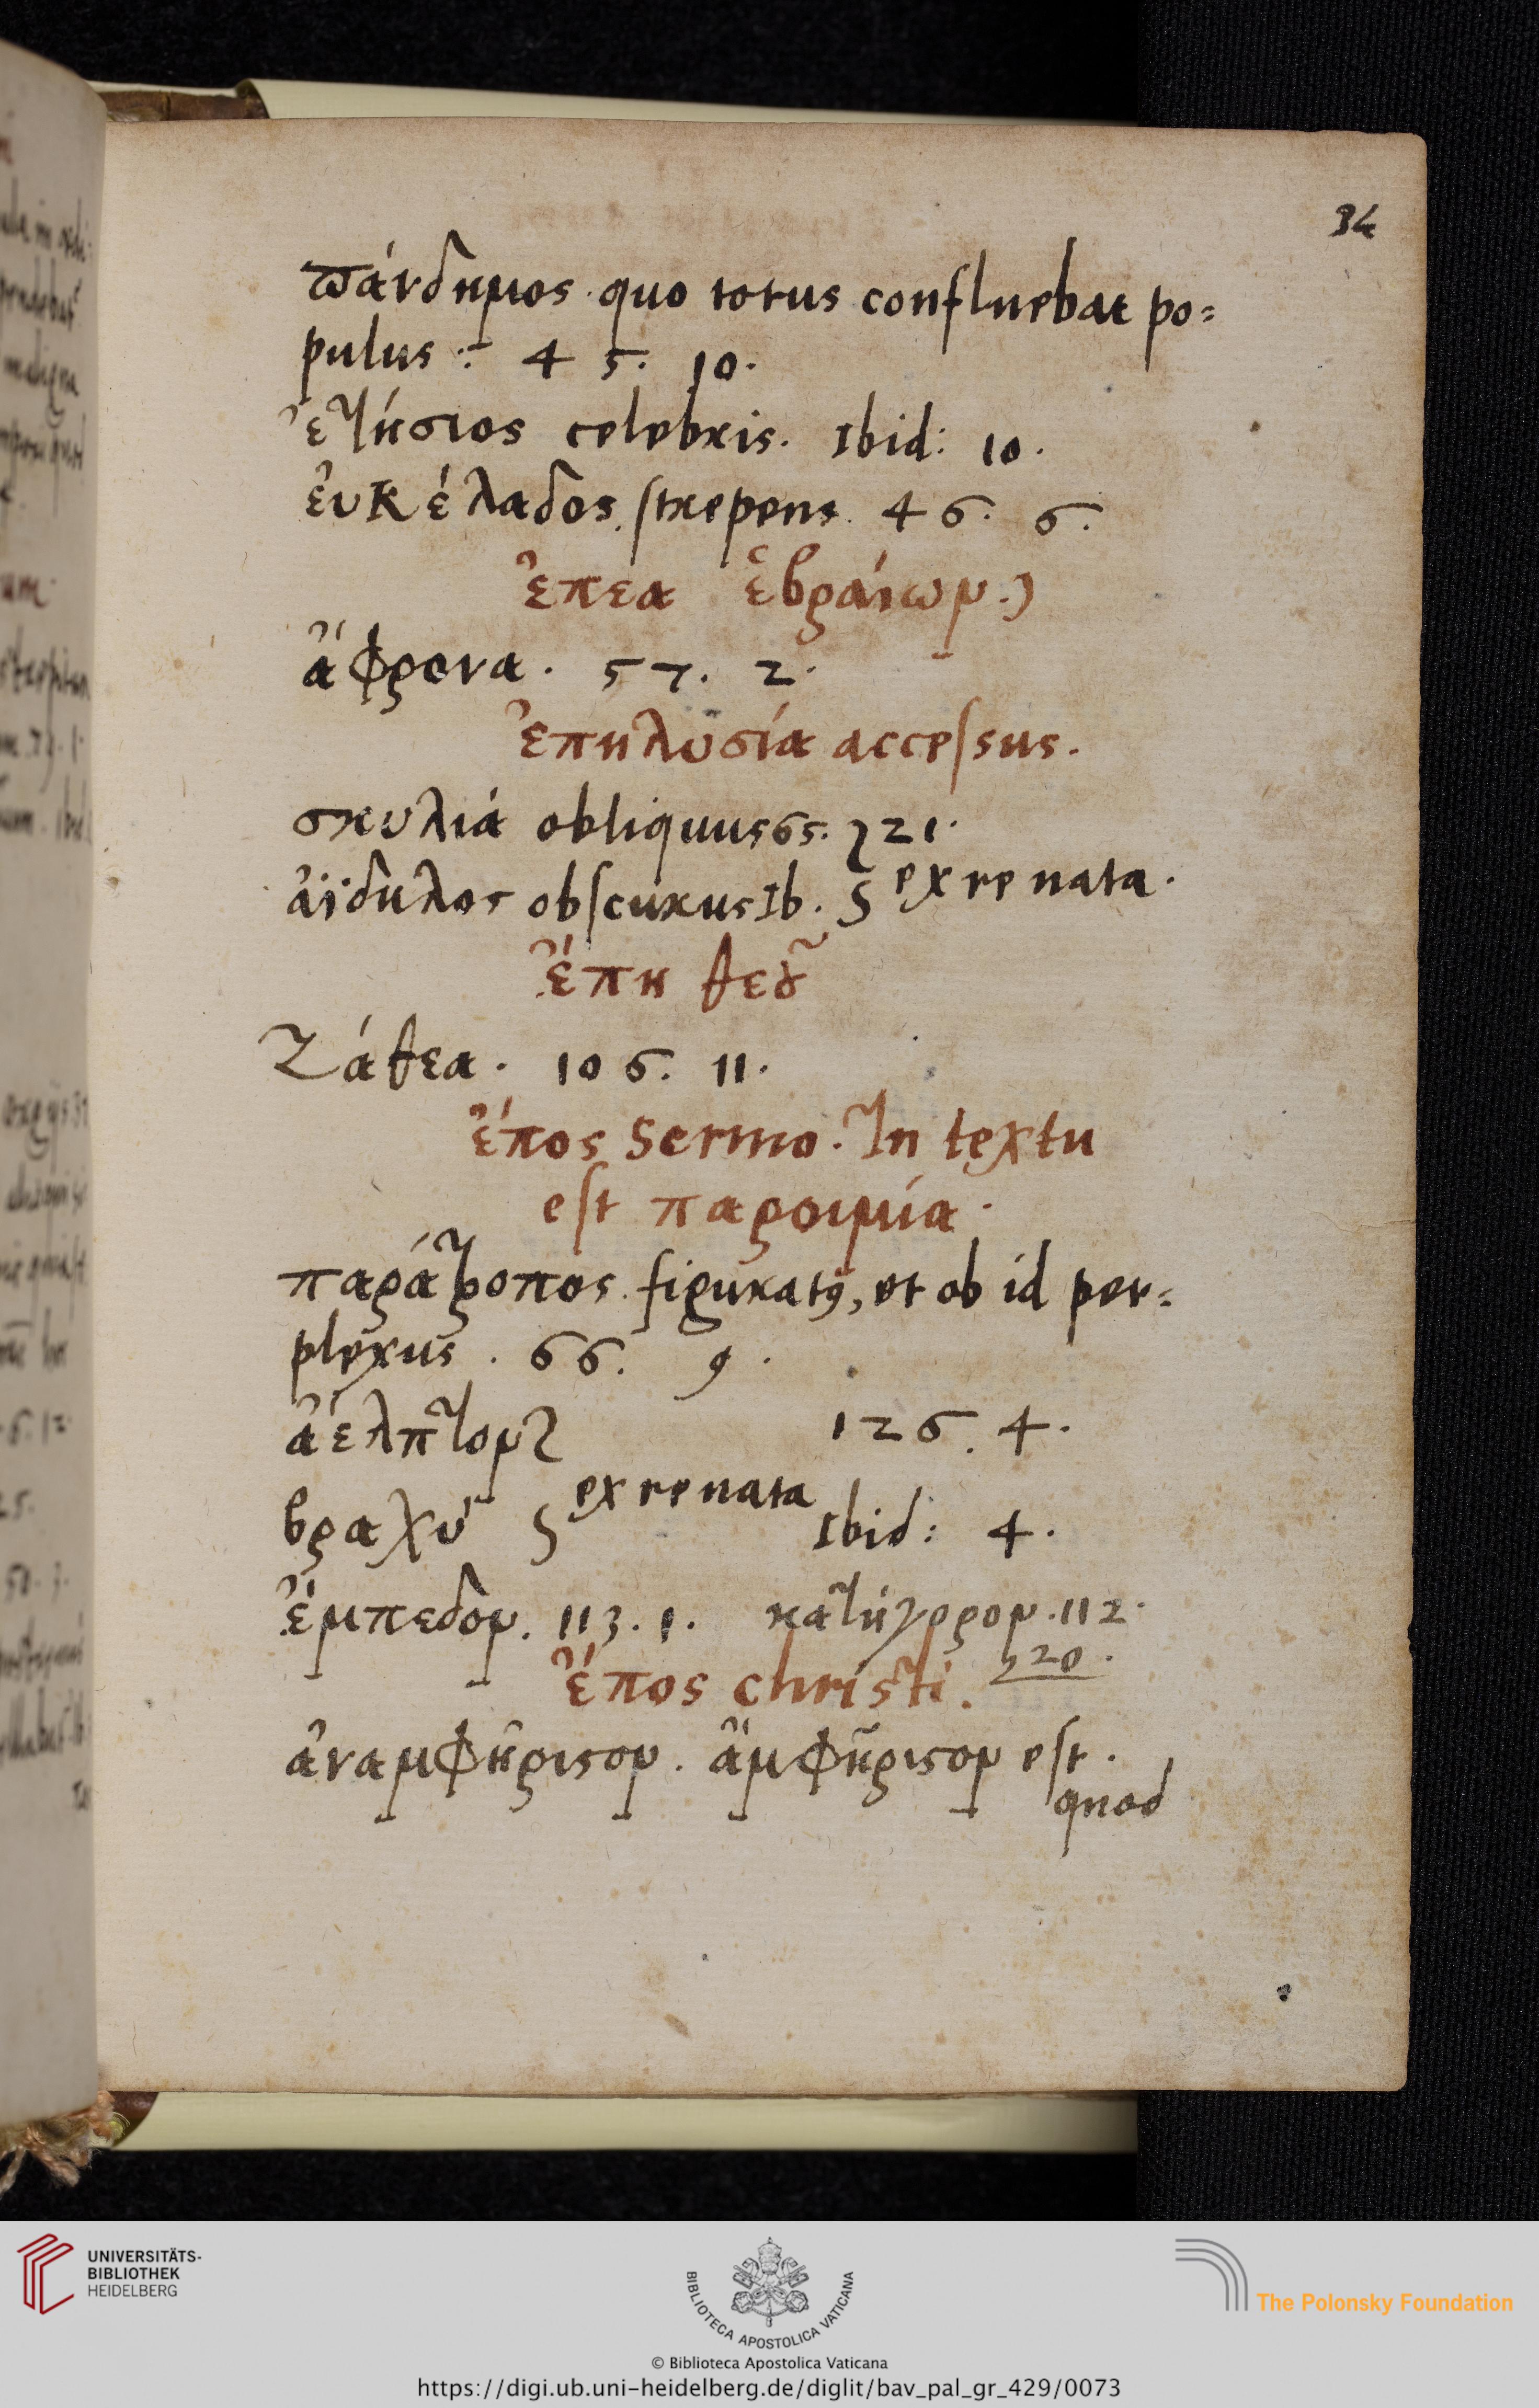 34
πάνδημος. quo totus confluebat po=
pulus : 45. 10.
ἐτήσιος celebris. Ibid: 10.
ἐυκέλαδος. strepens. 46. 6.
ἐπεα ἑβραίων.
ἄφρονα. 57. 2.
ἐπηλυσία accessus.
σκυλιά obliquus 65. 21.
ἀΐδηλος obscurus Ib. ex re nata.
ἔπη θεοῦ
Ζάθεα. 106. 11.
ἔπος Sermo. In textu
est παροιμία.
παράτροπος. figuratꝰ, et ob id per=
plexus. 66. 9.
ἀέλπτον 126. 4.
βραχύ ex re nata Ibid: 4.
ἔμπεδον. 113. 1. κατήγορον. 112.
20.
ἔπος christi.
ἀναμφήριςον. ἀμφήριςον est.
quod
UNIVERSITÄTS-
BIBLIOTHEK
HEIDELBERG
BIBLIOTECA APOSTOLICA VATICANA
© Biblioteca Apostolica Vaticana
The Polonsky Foundation
https://digi.ub.uni-heidelberg.de/diglit/bav_pal_gr_429/0073